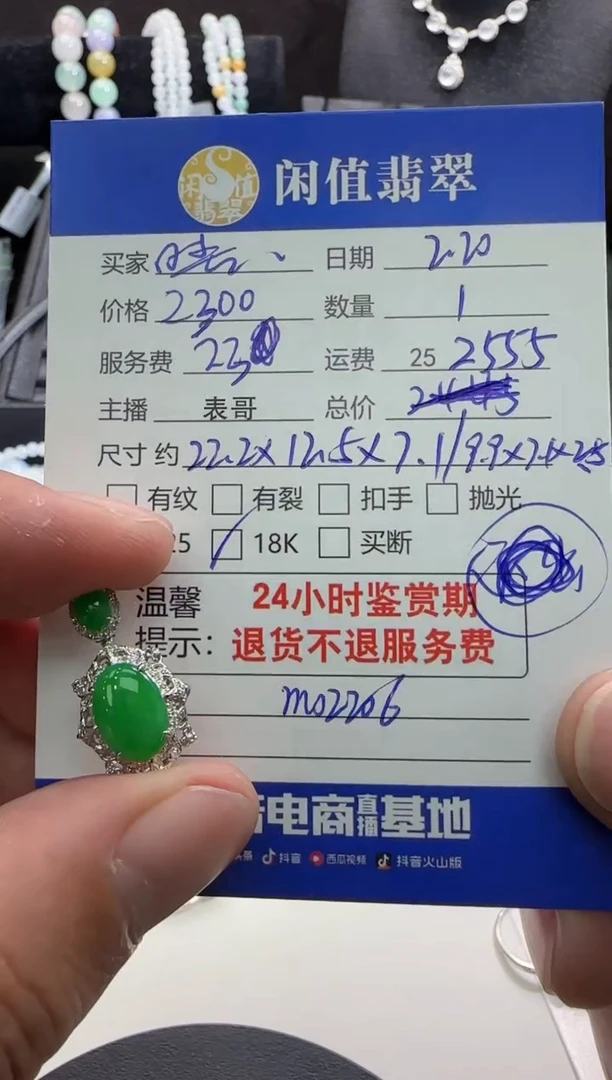 闲值翡翠
闲值翡翠
买家 日期 2.20
价格 2300 数量 1
服务费 23 运费 25 2555
主播 表哥 总价
尺寸 约 22.2×12.5×7.1/9.9×7.1×2.5
有纹 有裂 扣手 抛光
25 18K 买断
温馨 24小时鉴赏期
提示: 退货不退服务费
m02206
电商直播基地
抖音 西瓜视频 抖音火山版